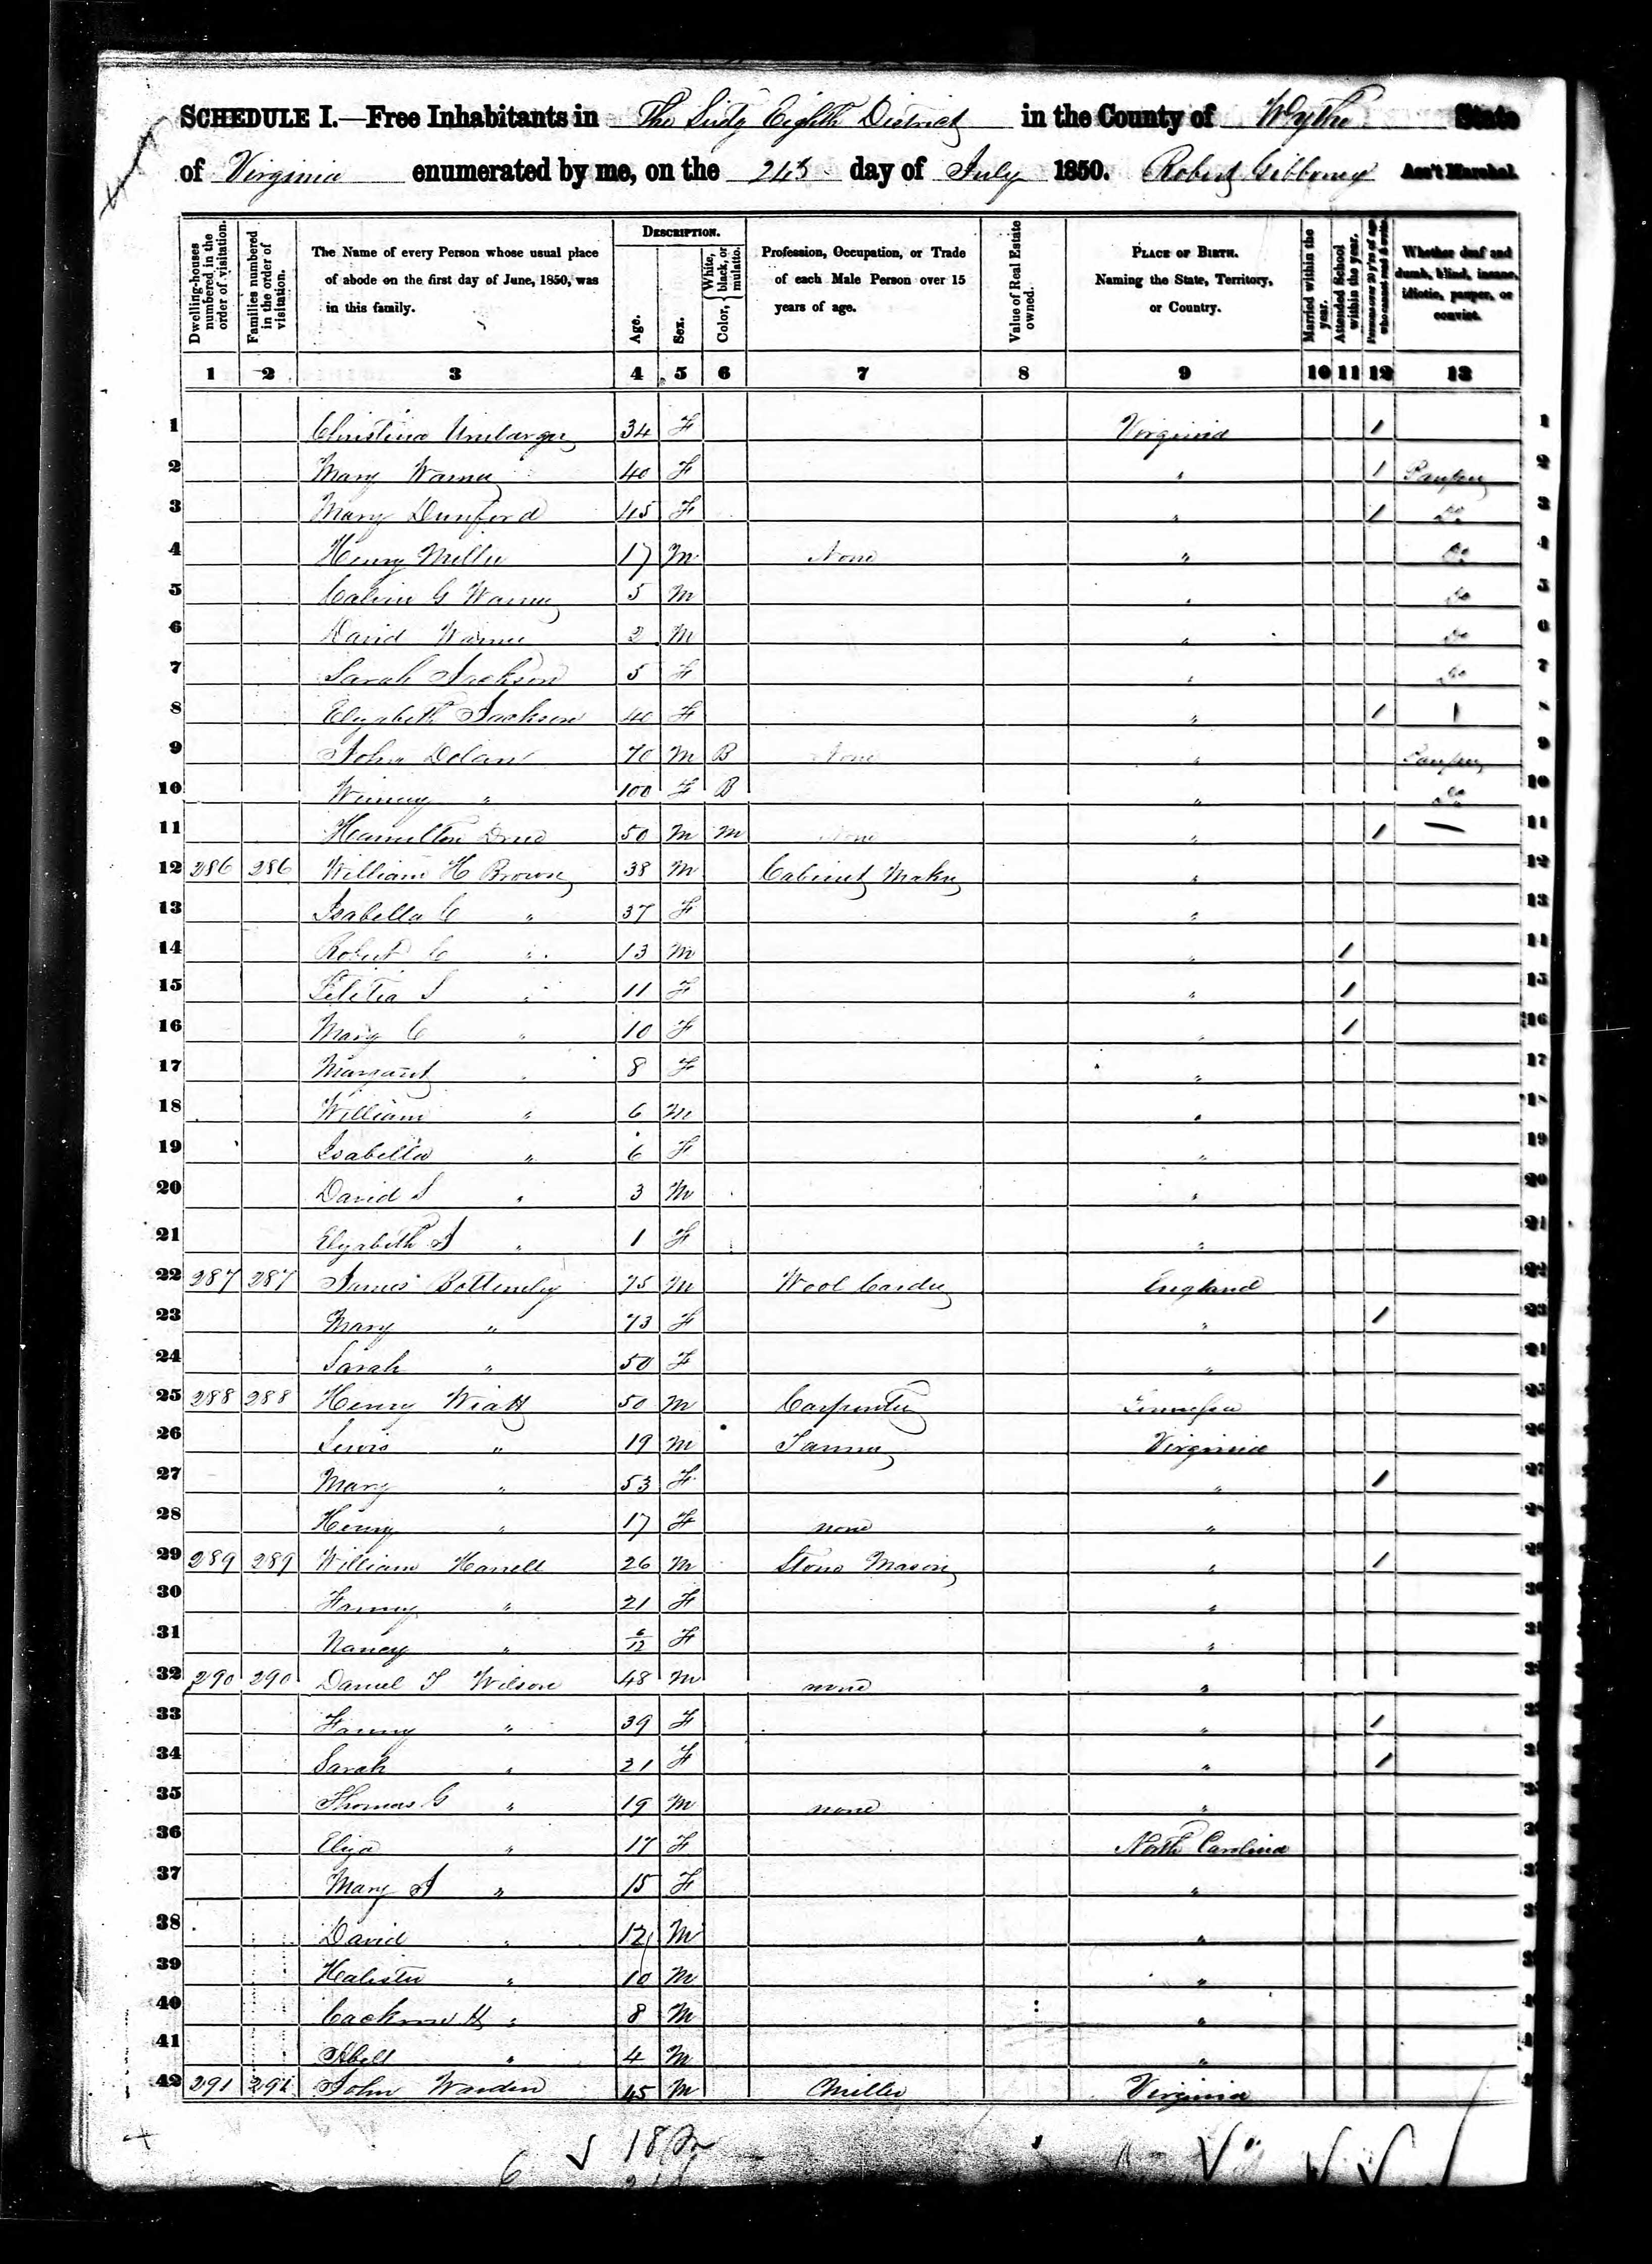 SCHEDULE I.—Free Inhabitants in The Eighth District in the County of Wythe State
of Virginia enumerated by me, on the 24th day of July 1850. Robert Gibboney Ass't Marshal.
Dwelling-houses numbered in the order of visitation.
Families numbered in the order of visitation.
The Name of every Person whose usual place of abode on the first day of June, 1850, was in this family.
DESCRIPTION.
Age.
Sex.
Color, { White, black, or mulatto.
Profession, Occupation, or Trade of each Male Person over 15 years of age.
Value of Real Estate owned.
PLACE OF BIRTH. Naming the State, Territory, or Country.
Married within the year.
Attended School within the year.
Persons over 20 y'rs of age who cannot read & write.
Whether deaf and dumb, blind, insane, idiotic, pauper, or convict.
1 2 3 4 5 6 7 8 9 10 11 12 13
1 Christina Umbarger 34 F Virginia 1 1
2 Mary Warner 40 F " 1 Pauper 2
3 Mary Dunford 45 F " 1 Do 3
4 Henry Miller 17 M None " Do 4
5 Calvin G Warner 5 M " Do 5
6 David Warner 2 M " Do 6
7 Sarah Jackson 5 F " Do 7
8 Elizabeth Jackson 40 F " 1 1 8
9 John Dolan 70 M B None " Pauper 9
10 Winney " 100 F B " Do 10
11 Hamilton 50 M M None " 1 — 11
12 286 286 William H Brown 38 M Cabinet Maker " 12
13 Isabella C " 37 F " 13
14 Robert C " 13 M " 1 14
15 Letitia S " 11 F " 1 15
16 Mary C " 10 F " 1 16
17 Margaret " 8 F " 17
18 William " 6 M " 18
19 Isabella " 6 F " 19
20 David S " 3 M " 20
21 Elizabeth S " 1 F " 21
22 287 287 James Bottimley 75 M Wool Carder England 22
23 Mary " 73 F " 1 23
24 Sarah " 50 F " 24
25 288 288 Henry Wiatt 50 M Carpenter Tennessee 25
26 Lewis " 19 M Tanner Virginia 26
27 Mary " 53 F " 1 27
28 Henry " 17 F none " 28
29 289 289 William Harrell 26 M Stone Mason " 1 29
30 Fanny " 21 F " 30
31 Nancy " 6/12 F "
32 290 290 Daniel T Wilson 48 M none "
33 Fanny " 39 F " 1
34 Sarah " 21 F " 1
35 Thomas G " 19 M none "
36 Eliza " 17 F North Carolina
37 Mary S " 15 F "
38 David " 12 M "
39 " 10 M "
40 " 8 M "
41 Abell " 4 M "
42 291 291 John Warden 45 M Miller Virginia
6 18